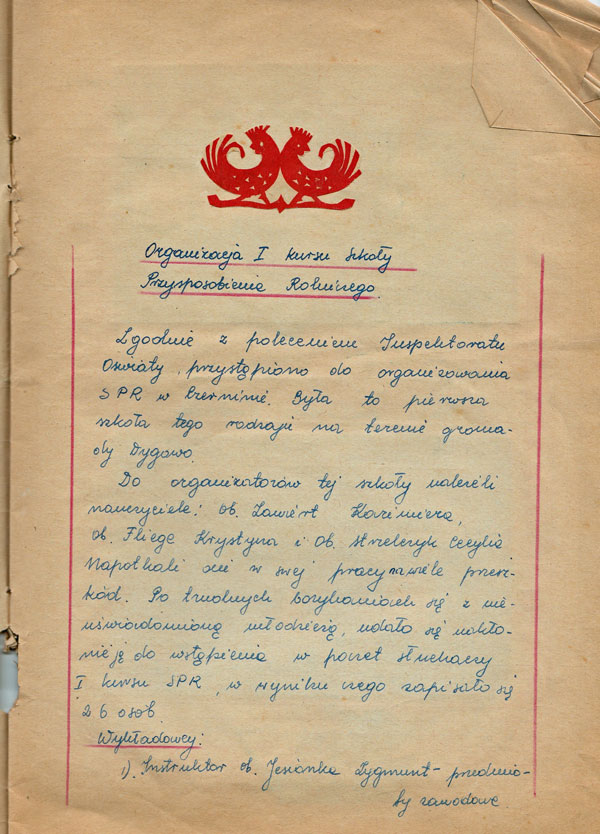 Organizacja I kursu Szkoły
Przysposobienia Rolniczego.
Zgodnie z poleceniem Inspektoratu
Oświaty, przystąpiono do organizowania
SPR w Czerninie. Była to pierwsza
szkoła tego rodzaju na terenie groma-
dy Dygowo.
Do organizatorów tej szkoły należeli
nauczyciele: ob. Kazimiera,
ob. Fliege Krystyna i ob. Strzelczyk Cecylia
Napotkali oni w swej pracy na wiele przesz-
kód. Po trudnych borykaniach się z nie-
uświadomioną młodzieżą, udało się nakło-
nić ją do wstąpienia w poczet słuchaczy
I kursu SPR, w wyniku czego zapisało się
26 osób.
Wykładowcy:
1). Instruktor ob. Jesionka Zygmunt - przedmio-
ty zawodowe.